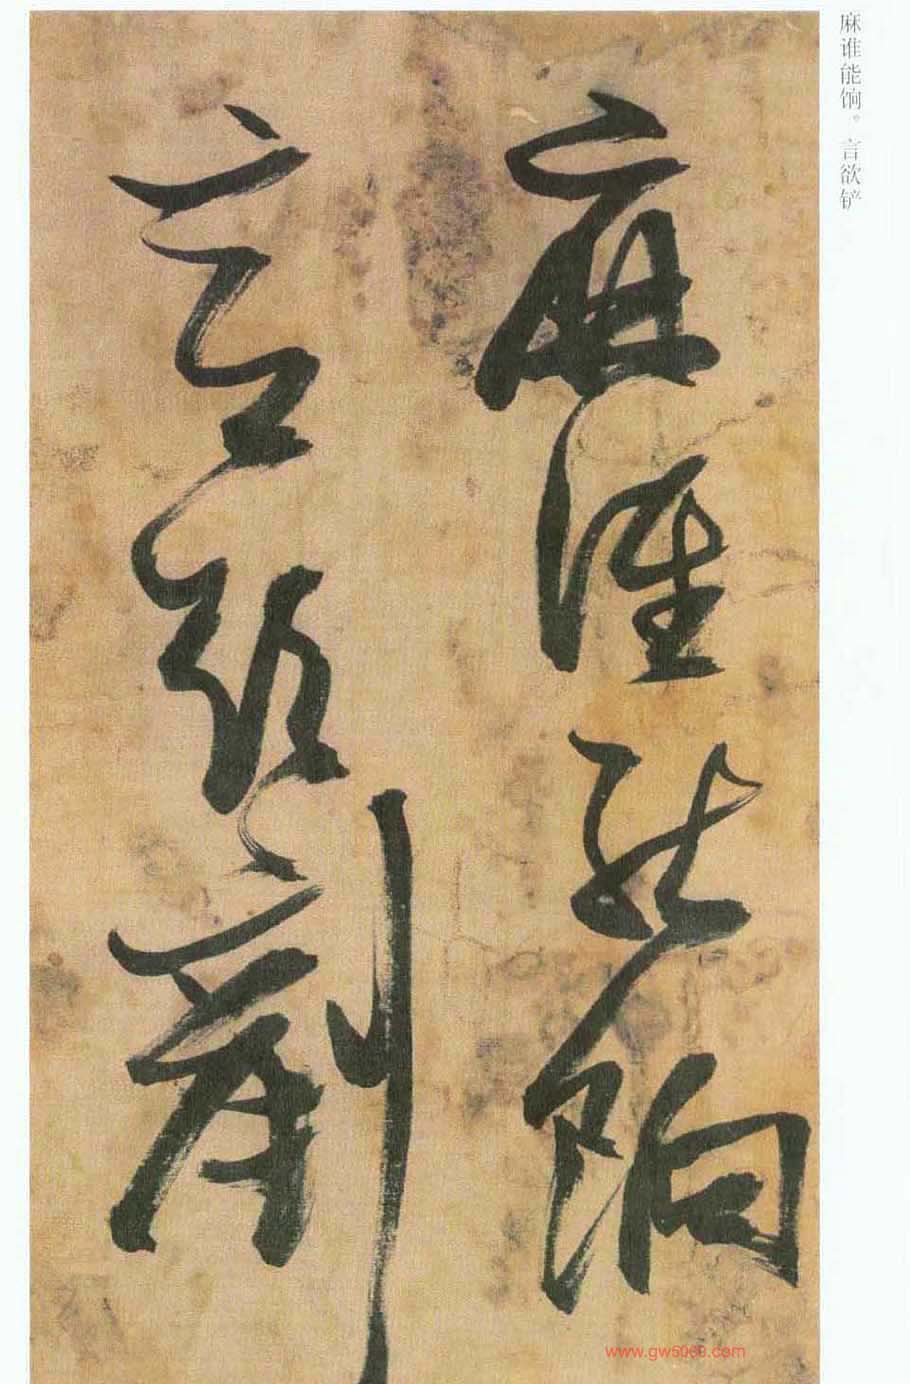 麻谁能饷。言欲铲
麻誰能餉
言欲剷
www.gw5060.com